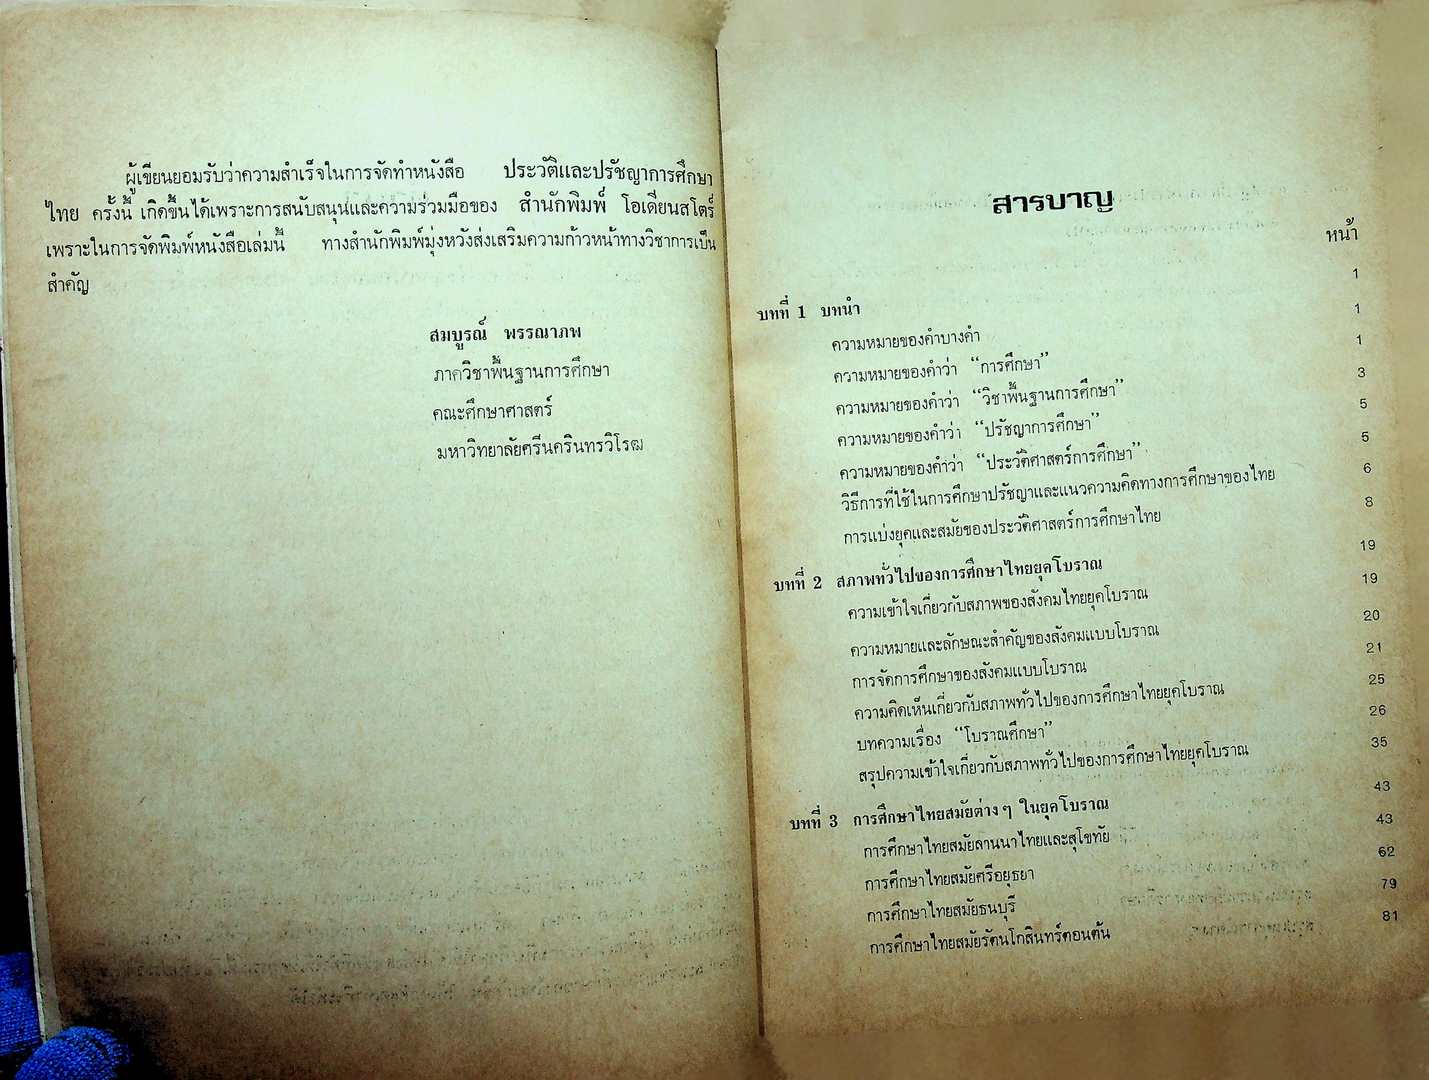 ผู้เขียนยอมรับว่าความสำเร็จในการจัดทำหนังสือ ประวัติและปรัชญาการศึกษา
ไทย ครั้งนี้ เกิดขึ้นได้เพราะการสนับสนุนและความร่วมมือของ สำนักพิมพ์ โอเดียนสโตร์
เพราะในการจัดพิมพ์หนังสือเล่มนี้ ทางสำนักพิมพ์มุ่งหวังส่งเสริมความก้าวหน้าทางวิชาการเป็น
สำคัญ
สมบูรณ์ พรรณาภพ
ภาควิชาพื้นฐานการศึกษา
คณะศึกษาศาสตร์
มหาวิทยาลัยศรีนครินทรวิโรฒ
สารบาญ
หน้า
บทที่ 1 บทนำ 1
ความหมายของคำบางคำ 1
ความหมายของคำว่า “การศึกษา” 1
ความหมายของคำว่า “วิชาพื้นฐานการศึกษา” 3
ความหมายของคำว่า “ปรัชญาการศึกษา” 5
ความหมายของคำว่า “ประวัติศาสตร์การศึกษา” 5
วิธีการที่ใช้ในการศึกษาปรัชญาและแนวความคิดทางการศึกษาของไทย 6
การแบ่งยุคและสมัยของประวัติศาสตร์การศึกษาไทย 8
บทที่ 2 สภาพทั่วไปของการศึกษาไทยยุคโบราณ 19
ความเข้าใจเกี่ยวกับสภาพของสังคมไทยยุคโบราณ 19
ความหมายและลักษณะสำคัญของสังคมแบบโบราณ 20
การจัดการศึกษาของสังคมแบบโบราณ 21
ความคิดเห็นเกี่ยวกับสภาพทั่วไปของการศึกษาไทยยุคโบราณ 25
บทความเรื่อง “โบราณศึกษา” 26
สรุปความเข้าใจเกี่ยวกับสภาพทั่วไปของการศึกษาไทยยุคโบราณ 35
บทที่ 3 การศึกษาไทยสมัยต่าง ๆ ในยุคโบราณ 43
การศึกษาไทยสมัยลานนาไทยและสุโขทัย 43
การศึกษาไทยสมัยศรีอยุธยา 62
การศึกษาไทยสมัยธนบุรี 79
การศึกษาไทยสมัยรัตนโกสินทร์ตอนต้น 81